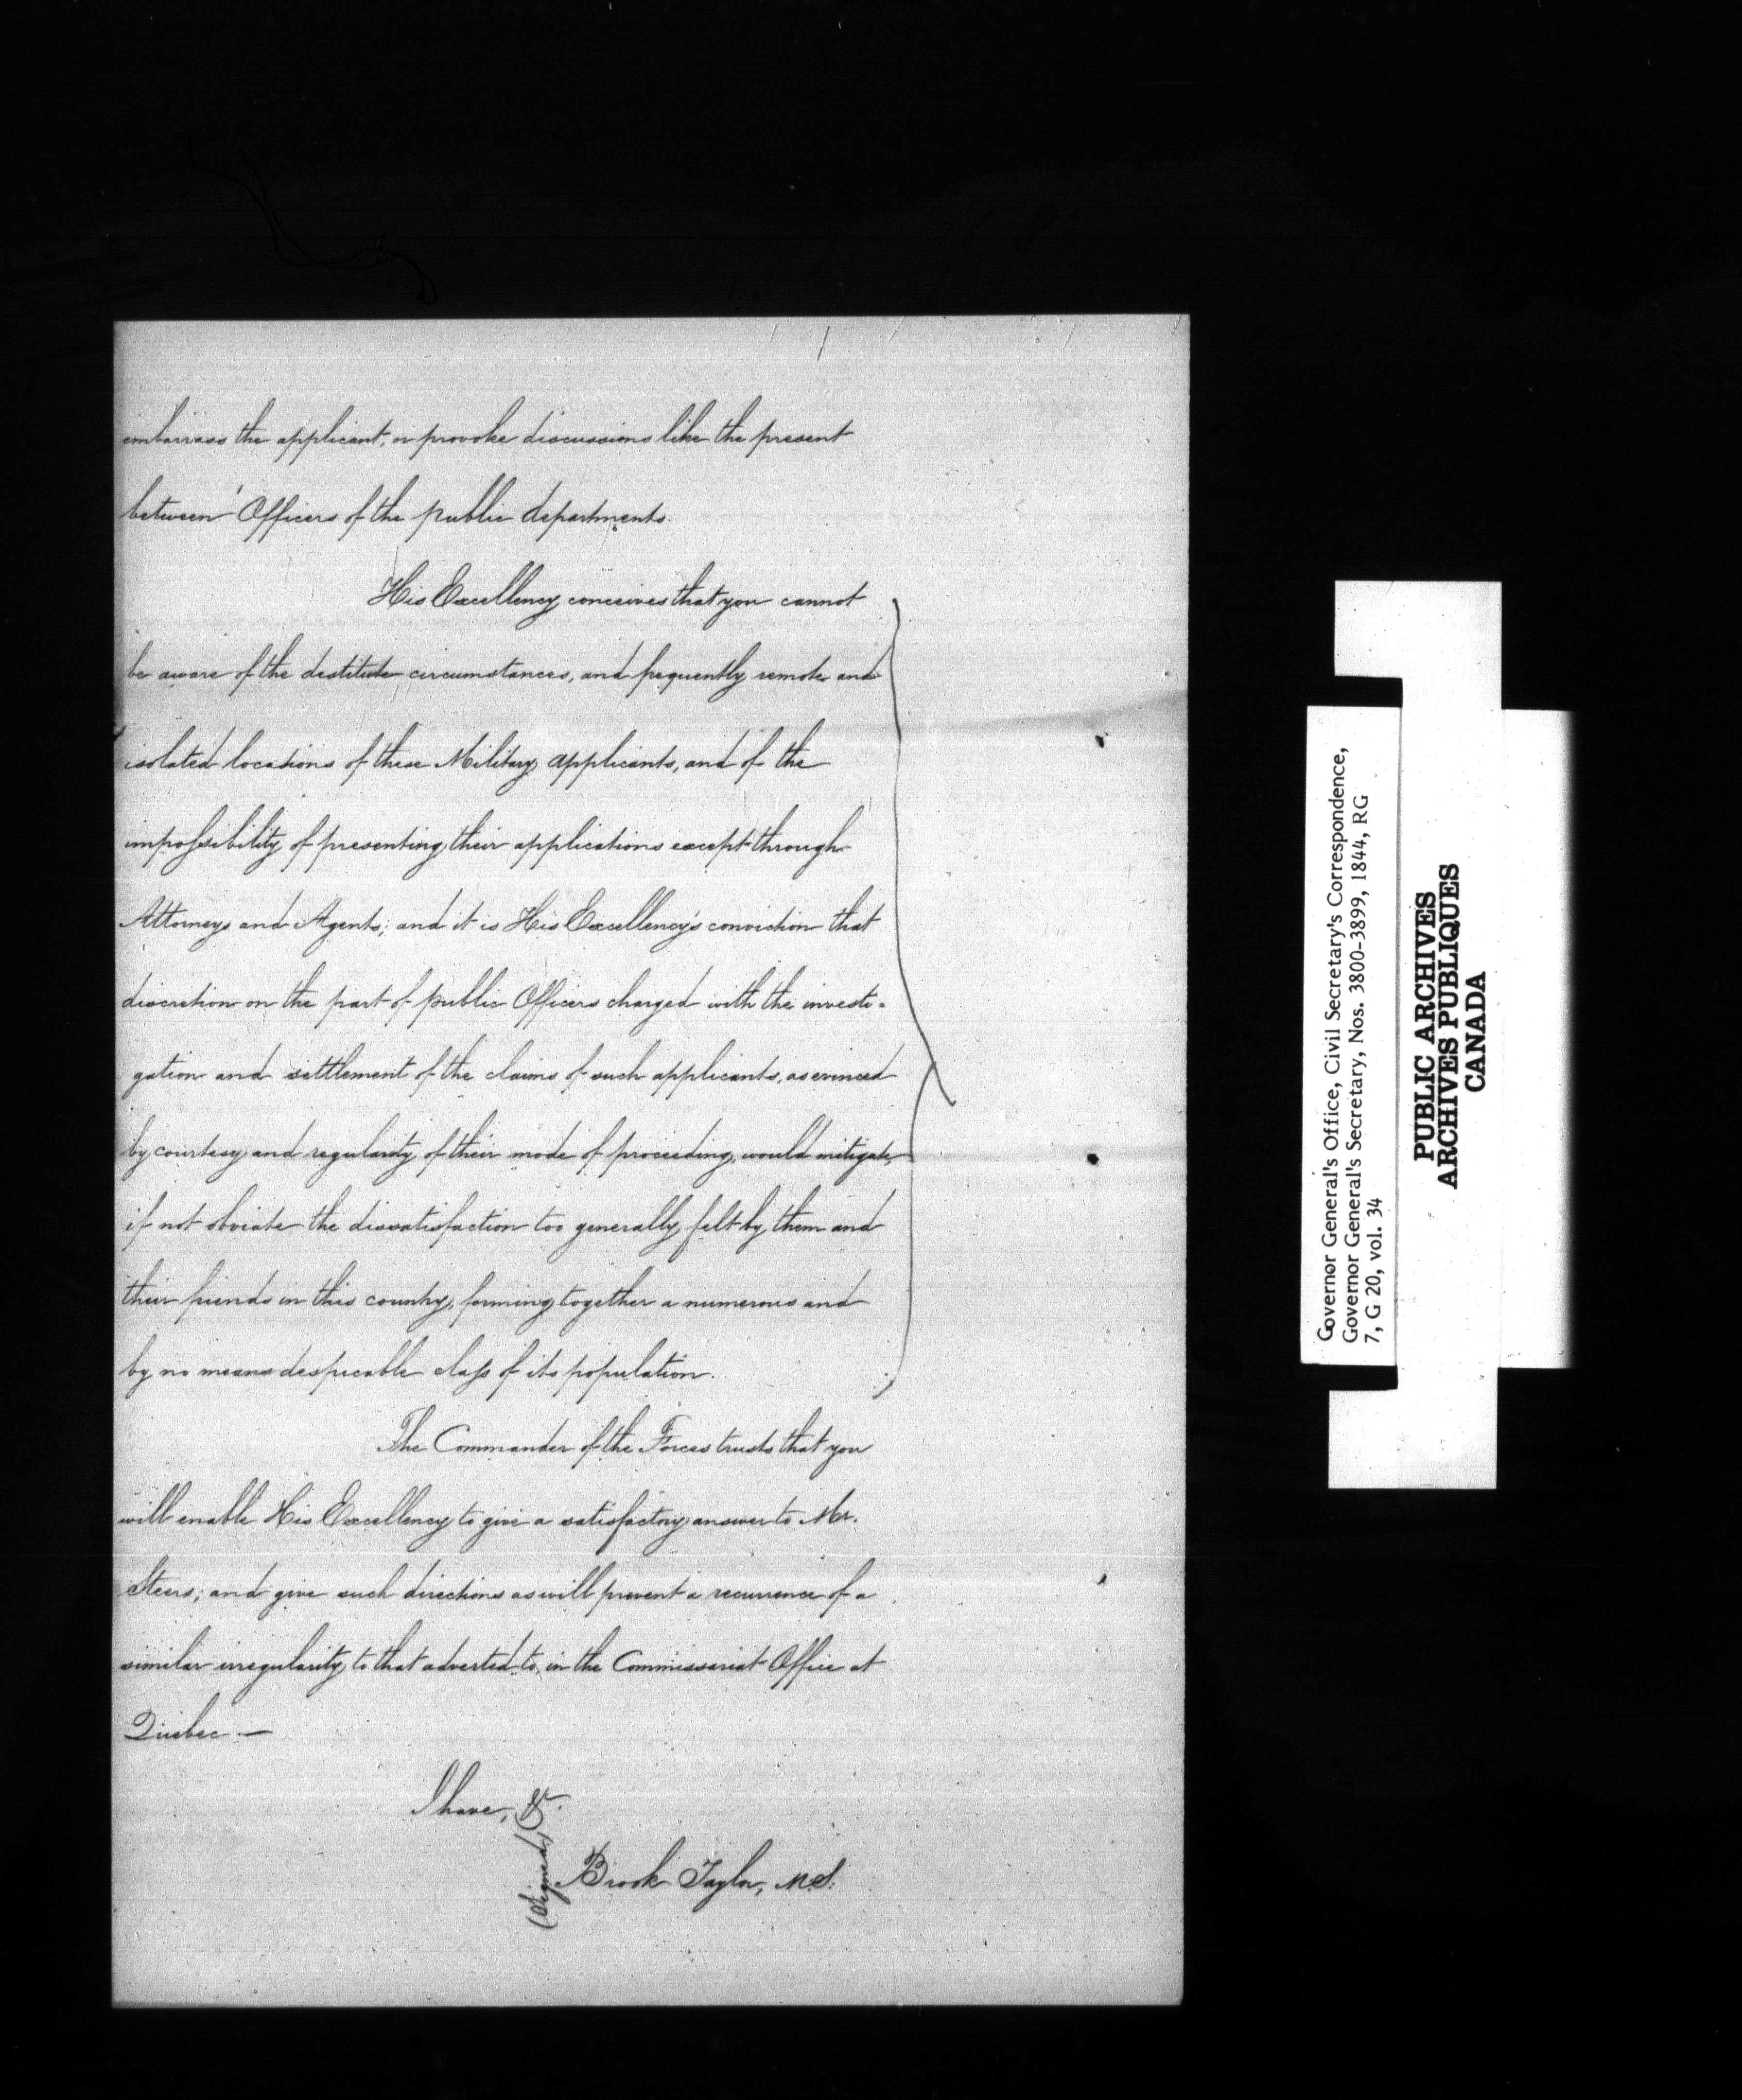 embarrass the applicant, or provoke discussions like the present
between Officers of the public departments.
His Excellency conceives that you cannot
be aware of the destitute circumstances, and frequently remote and
isolated locations of these Military applicants, and of the
impossibility of presenting their applications except through
Attorneys and Agents; and it is His Excellency's conviction that
discretion on the part of public Officers charged with the investi-
gation and settlement of the claims of such applicants, as evinced
by courtesy and regularity of their mode of proceeding, would mitigate,
if not obviate the dissatisfaction too generally felt by them and
their friends in this country, forming together a numerous and
by no means despicable class of its population.
The Commander of the Forces trusts that you
will enable His Excellency to give a satisfactory answer to Mr.
Steers; and give such directions as will prevent a recurrence of a
similar irregularity to that adverted to, in the Commissariat Office at
Quebec.—
I have, &c.
(Signed) Brook Taylor, M.S.
Governor General's Office, Civil Secretary's Correspondence,
Governor General's Secretary, Nos. 3800-3899, 1844, RG
7, G 20, vol. 34
PUBLIC ARCHIVES
ARCHIVES PUBLIQUES
CANADA